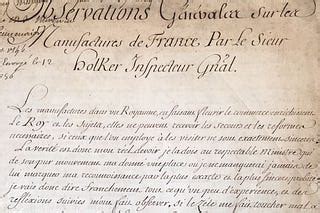 Observations Génerales Sur les
Manufactures de France Par Le Sieur
Holker Inspecteur Gñál.
1746
Les manufactures dans un Royaume, en faisant fleurir le commerce enrichissent
Le Roy et les Sujets, elles ne peuvent recevoir les Secours et les reformes
necessaires, si ceux que l'on employe à les visiter ne sont exactement
La verité est donc mon seul devoir je la dois au respectable Ministre qui
de son pur mouvement m'a donné une place ou je ne manquerai jamais de
lui marquer ma reconnoissance par la plus exacte et la plus
je vais donc dire franchement tout ce qu'un peu d'experience, et des
reflexions suivies m'ont fait observer, si le zele me fait toucher